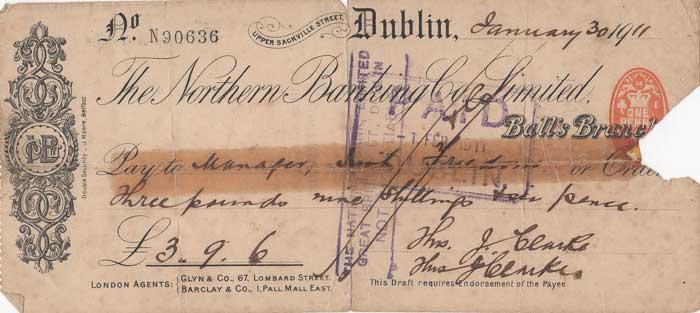 No. N90636 UPPER SACKVILLE STREET. Dublin, January 30 1911
The Northern Banking Co. Limited.
ONE PENNY
Ball's Branch
PAID
1 FEB 1911
Pay to Manager, Irish Freedom or Order
Three pounds nine shillings six pence.
£3. 9. 6
Thos. J. Clarke
Thos J Clarke
LONDON AGENTS: GLYN & CO., 67, LOMBARD STREET.
BARCLAY & CO., 1, PALL MALL EAST.
This Draft requires Endorsement of the Payee
THE NATIONAL
GREAT
NOT